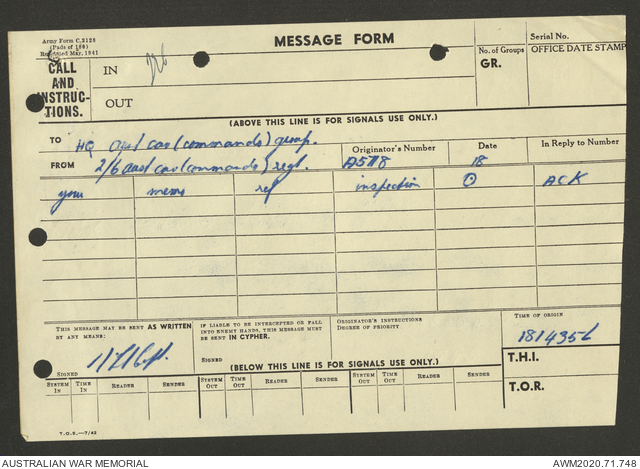 Army Form C.2128
(Pads of 100)
Reprinted May, 1941
MESSAGE FORM
Serial No.
CALL
AND
INSTRUC-
TIONS.
IN
OUT
No. of Groups
GR.
OFFICE DATE STAMP
(ABOVE THIS LINE IS FOR SIGNALS USE ONLY.)
TO HQ aust cav (commando) group.
FROM 2/6 aust cav (commando) regt.
Originator's Number
Date
In Reply to Number
18
your memo ref inspection ⊙ ACK
THIS MESSAGE MAY BE SENT AS WRITTEN
BY ANY MEANS:
SIGNED
IF LIABLE TO BE INTERCEPTED OR FALL
INTO ENEMY HANDS, THIS MESSAGE MUST
BE SENT IN CYPHER.
SIGNED
ORIGINATOR'S INSTRUCTIONS
DEGREE OF PRIORITY
TIME OF ORIGIN
181435L
T.H.I.
T.O.R.
(BELOW THIS LINE IS FOR SIGNALS USE ONLY.)
SYSTEM IN TIME IN READER SENDER SYSTEM OUT TIME OUT READER SENDER SYSTEM OUT TIME OUT READER SENDER
T.O.S.—7/42
AUSTRALIAN WAR MEMORIAL
AWM2020.71.748